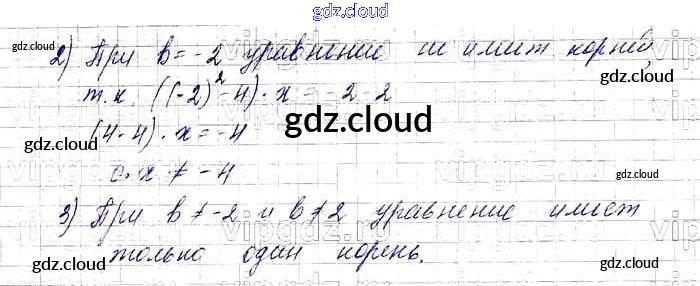 gdz.cloud
2) При b = -2 уравнение не имеет корней,
т.к. ((-2)² - 4) · x = -2 - 2
(4-4) · x = -4
0 · x ≠ -4
3) При b ≠ -2 и b ≠ 2 уравнение имеет
только один корень.
gdz.cloud
gdz.cloud
gdz.cloud
gdz.cloud
gdz.cloud
gdz.cloud
gdz.cloud
gdz.cloud
gdz.cloud